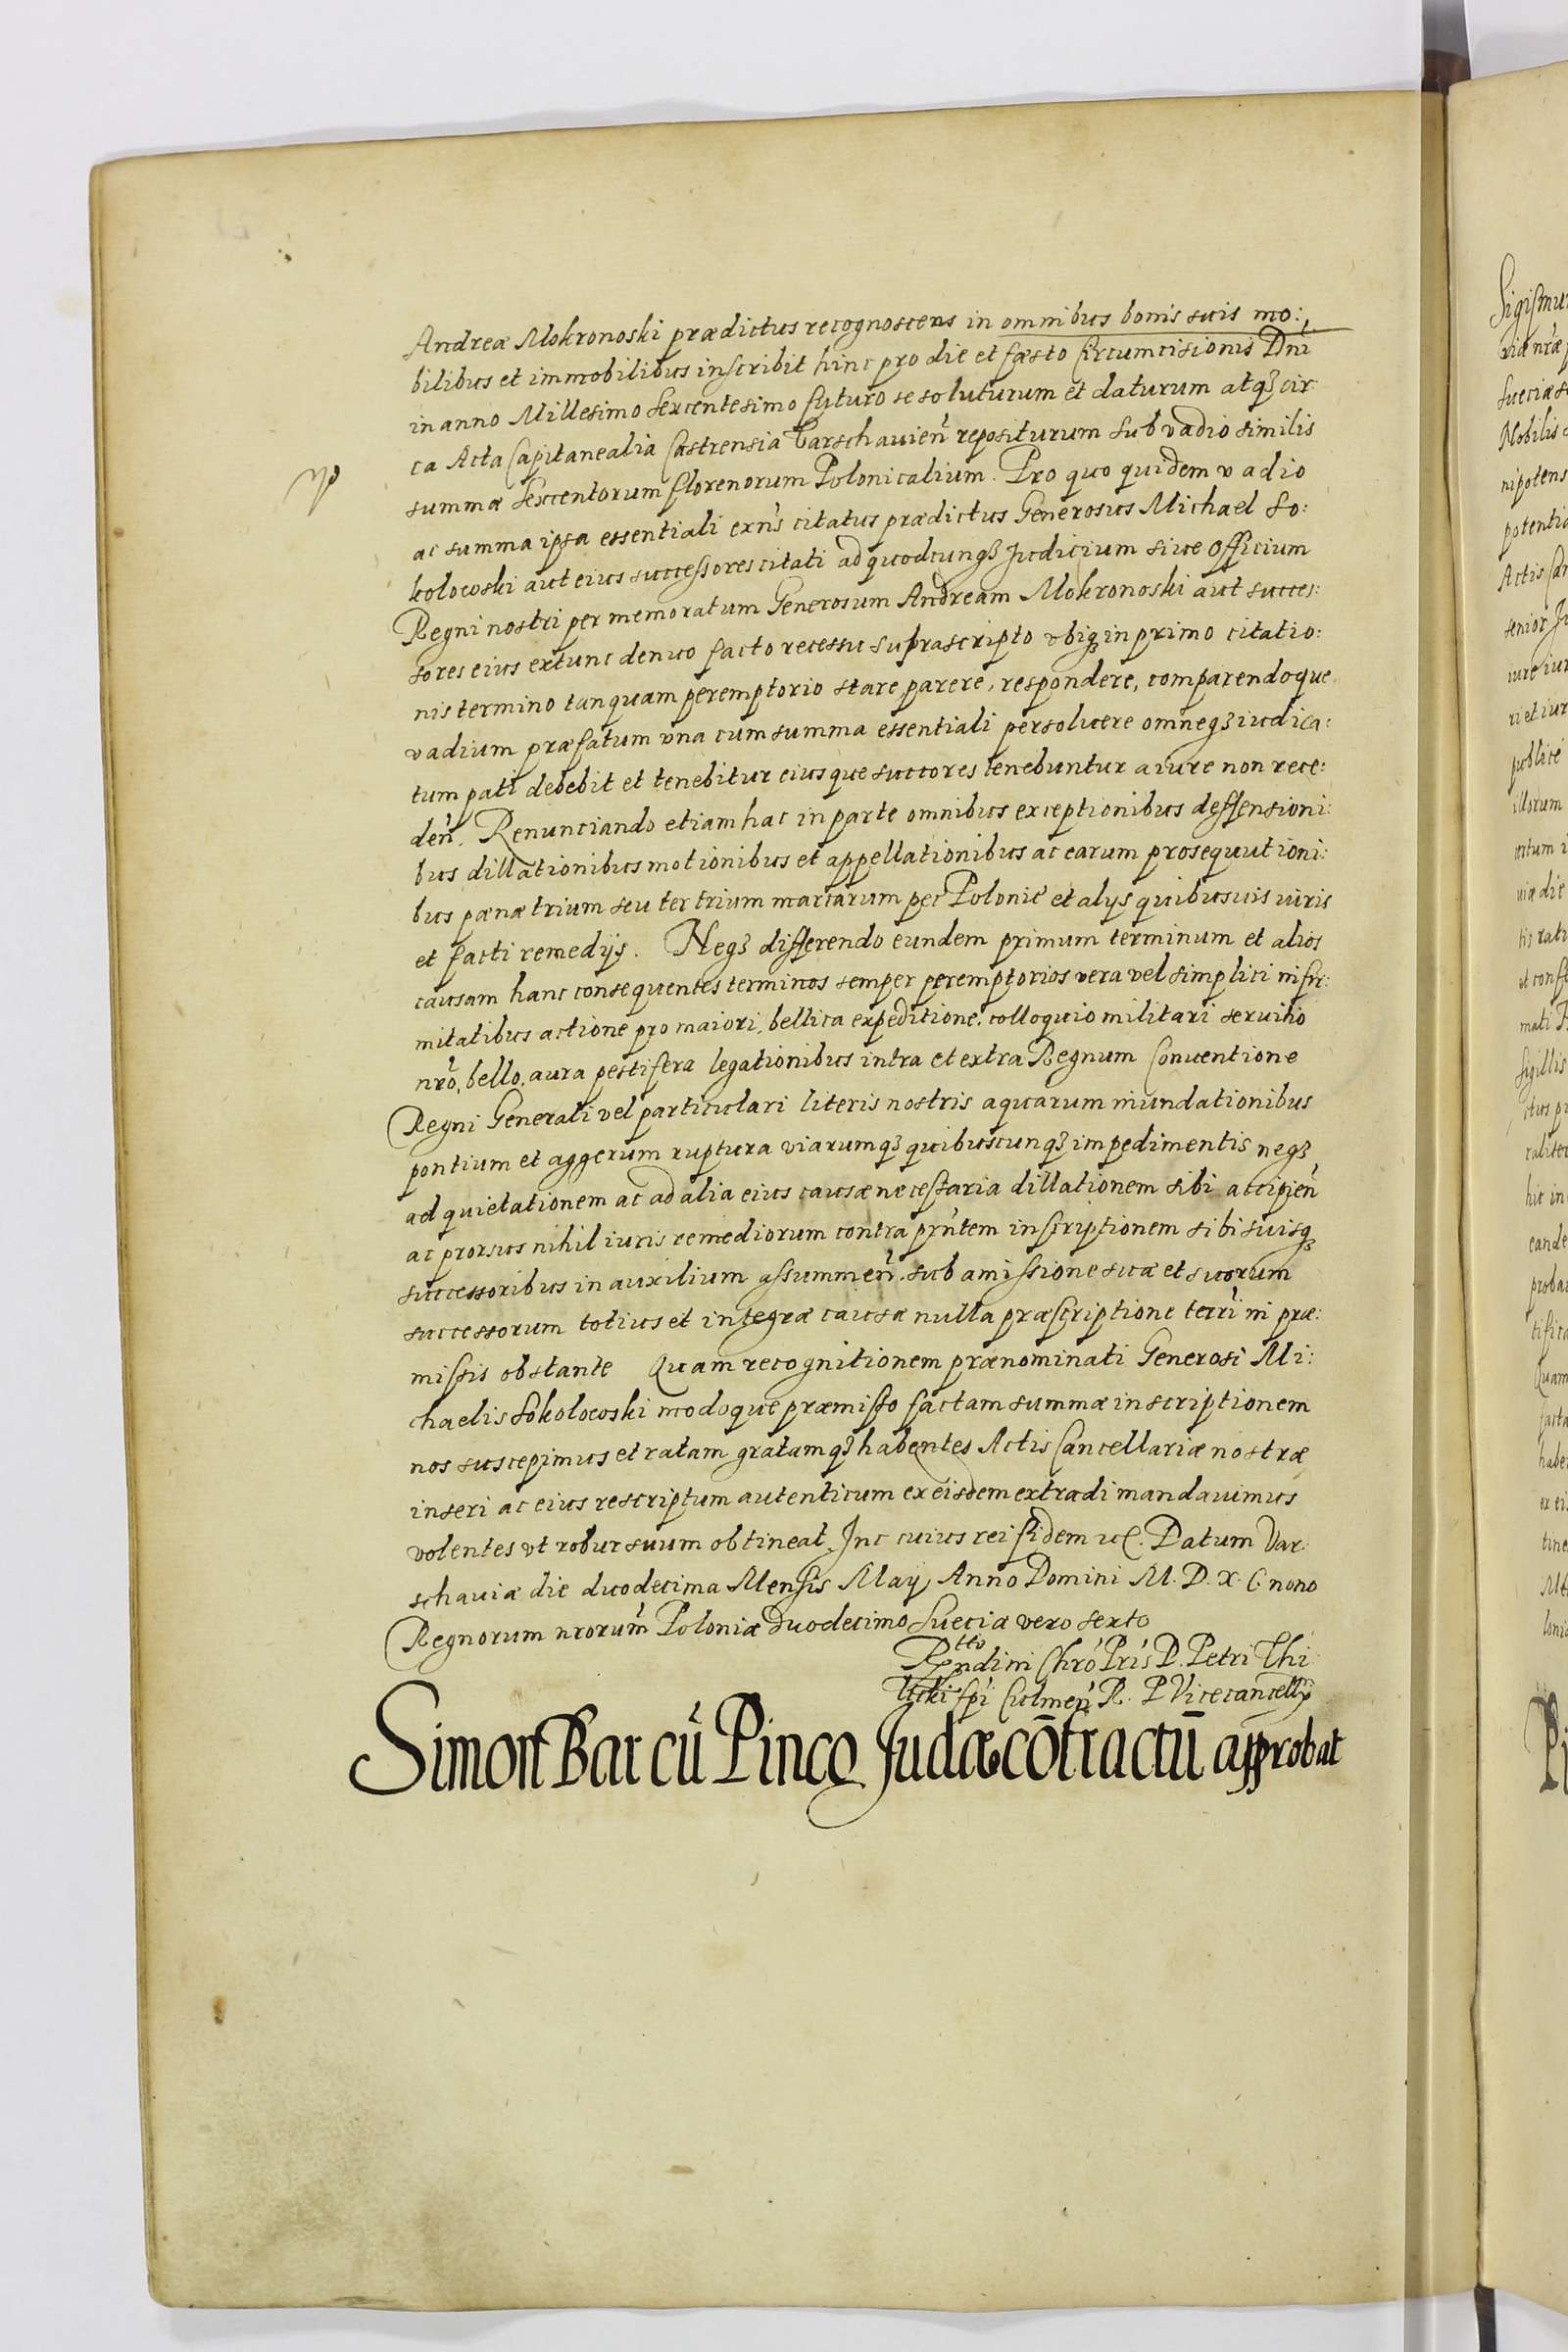 Andreæ Mokronoski prædictus recognoscens in omnibus bonis suis mo:
bilibus et immobilibus inscribit hinc pro die et fæsto Circumcisionis Dni
in anno Millesimo Sexcentesimo futuro se soluturum et daturum atqȝ cir
ca Acta Capitanealia Castrensia Varschavien̄ repositurum sub vadio similis
summæ Sexcentorum florenorum Polonicalium. Pro quo quidem vadio
ac summa ipsa essentiali exn̄s citatus prædictus Generosus Michael So:
kolowski aut eius successores citati ad quodcunqȝ Judicium siue Officium
Regni nostri per memoratum Generosum Andream Mokronoski aut succes:
sores eius extunc denuo facto recessu suprascripto vbiqȝ in primo citatio:
nis termino tanquam peremptorio stare, parere, respondere, comparendoque
vadium præfatum vna cum summa essentiali persoluere omneqȝ iudica:
tum pati debebit et tenebitur eiusque succores tenebuntur a iure non rece:
den̄. Renunciando etiam hac in parte omnibus exceptionibus deffensioni:
bus dillationibus motionibus et appellationibus ac earum prosequutioni:
bus pænæ trium seu ter trium marcarum pec Polonie et alys quibusuis iuris
et facti remedijs. Neqȝ differendo eundem primum terminum et alios
causam hanc consequentes terminos semper peremptorios vera vel simplici infir:
mitatibus actione pro maiori, bellica expeditione, colloquio militari seruitio
nrō, bello, aura pestifera legationibus intra et extra Regnum Conuentione
Regni Generali vel particulari literis nostris aquarum inundationibus
pontium et aggerum ruptura viarumqȝ quibuscunqȝ impedimentis neqȝ
ad quietationem ac ad alia eius causæ necessaria dillationem sibi accipien̄
ac prorsus nihil iuris remediorum contra pn̄tem inscriptionem sibi suisqȝ
successoribus in auxilium assummen̄. sub amissione suæ et suorum
successorum totius et integræ causæ nulla præscriptione terri in præ:
missis obstante Quam recognitionem prænominati Generosi Mi:
chaelis Sokolowski modoque præmisso factam summæ inscriptionem
nos suscepimus et ratam gratamqȝ habentes Actis Cancellariæ nostræ
inseri ac eius rescriptum autenticum ex eisdem extradi mandauimus
volentes vt robur suum obtineat. Inc cuius rei fidem etc. Datum Var:
schauiæ die duodecima Mensis May Anno Domini M. D. X. C. nono
Regnorum nrorum̄ Poloniæ duodecimo Sueciæ vero sexto
R̄tio Rndi in Chrō Pris D. Petri Thi
licki Epi Culmen̄ R. P Vicecancellȳ
Simon Bar cū Pinco Judæo cōtractū approbat